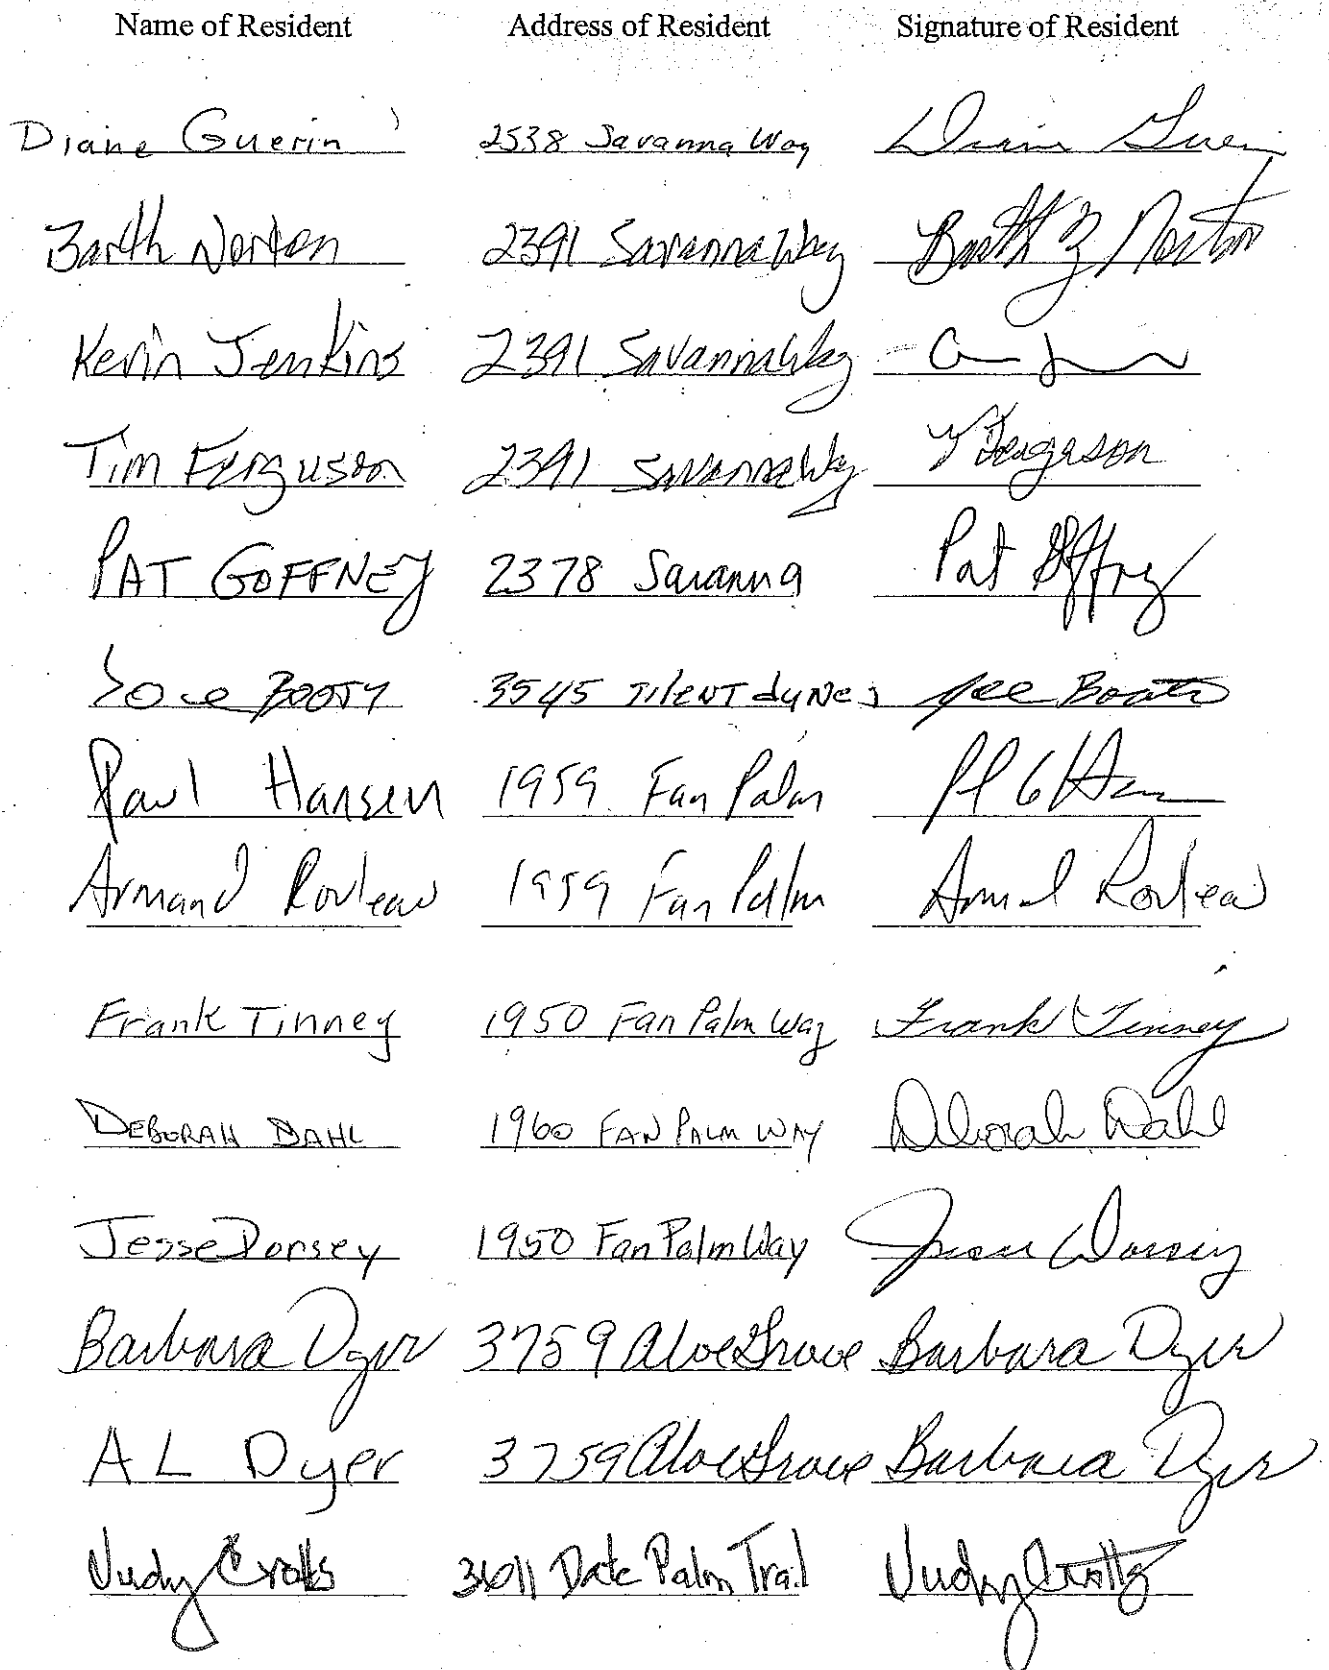 Name of Resident Address of Resident Signature of Resident
Diane Guerin 2538 Savanna Way Diane Guerin
Barth Norton 2391 Savanna Way Barth Norton
Kevin Jenkins 2391 Savanna Way
Tim Ferguson 2391 Savanna Way T Ferguson
PAT GOFFNEY 2378 Savanna Pat Goffney
BOOTY 3545 SILENT dUNES
Paul Hansen 1959 Fan Palm
Armand Rouleau 1959 Fan Palm Armand Rouleau
Frank Tinney 1950 Fan Palm Way Frank Tinney
DEBORAH DAHL 1960 FAN PALM WAY Deborah Dahl
Jesse Dorsey 1950 Fan Palm Way Jesse Dorsey
Barbara Dyer 3759 Aloe Grove Barbara Dyer
AL Dyer 3759 Aloe Grove Barbara Dyer
Judy Crotts 3611 Date Palm Trail Judy Crotts